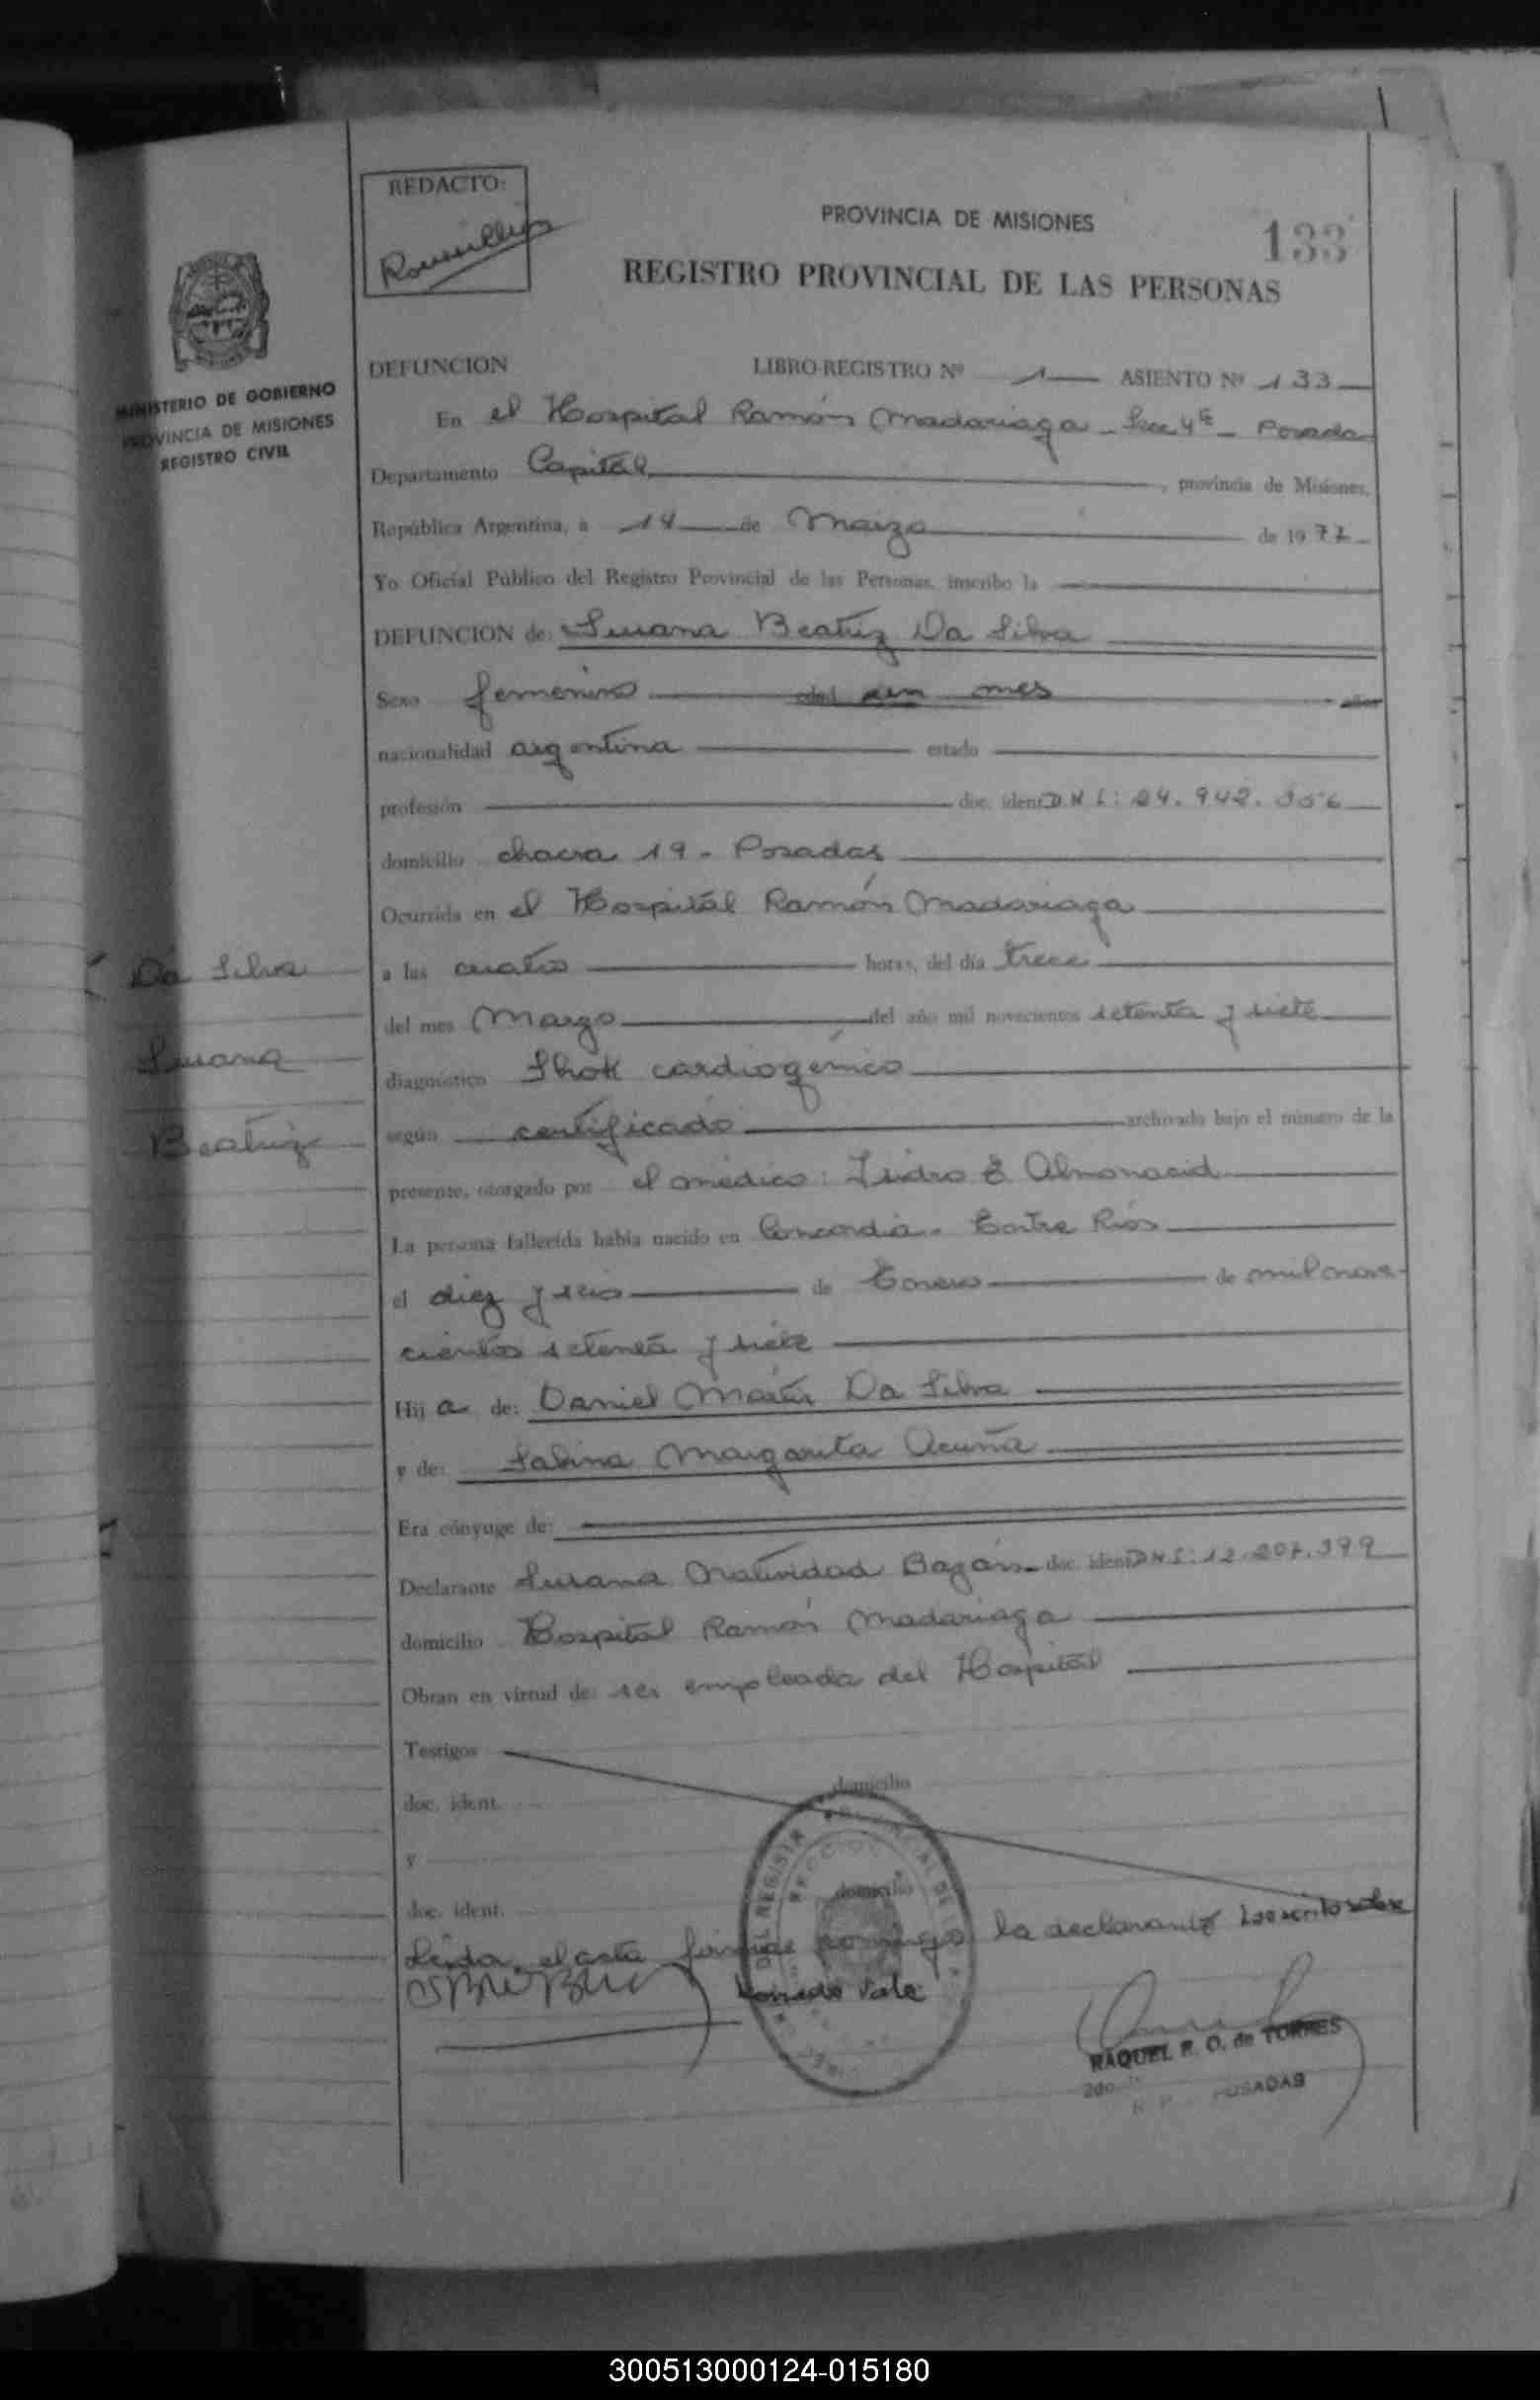 REDACTO:
PROVINCIA DE MISIONES
133
REGISTRO PROVINCIAL DE LAS PERSONAS
MINISTERIO DE GOBIERNO
PROVINCIA DE MISIONES
REGISTRO CIVIL
DEFUNCION LIBRO-REGISTRO Nº 1 ASIENTO Nº 133
En el Hospital Ramón Madariaga - Secc 4ª - Posadas
Departamento Capital, provincia de Misiones,
República Argentina, a 14 de Marzo de 1977
Yo Oficial Público del Registro Provincial de las Personas, inscribo la
DEFUNCION de: Susana Beatriz Da Silva
Sexo femenino edad un mes años
nacionalidad argentina estado
profesión doc. ident D.N.I: 24.942.356
domicilio chacra 19 - Posadas
Ocurrida en el Hospital Ramón Madariaga
Da Silva
a las cuatro horas, del día trece
del mes Marzo del año mil novecientos setenta y siete
Susana
diagnóstico Shok cardiogénico
Beatriz
según certificado archivado bajo el número de la
presente, otorgado por el médico: Isidro E Almonacid
La persona fallecida había nacido en Concordia - Entre Ríos
el diez y seis de Enero de mil nove-
cientos setenta y siete
Hij a de: Daniel Martir Da Silva
y de: Sabina Margarita Acuña
Era cónyuge de:
Declarante Susana Natividad Bazán - doc. ident DNI: 12.207.399
domicilio Hospital Ramón Madariaga
Obran en virtud de: ser empleada del Hospital
Testigos
domicilio
doc. ident.
y
domicilio
doc. ident.
Leída el acta firma conmigo la declarante Lo escrito sobre
borrado Vale
RAQUEL F. O. de TORRES
2do
POSADAS
300513000124-015180